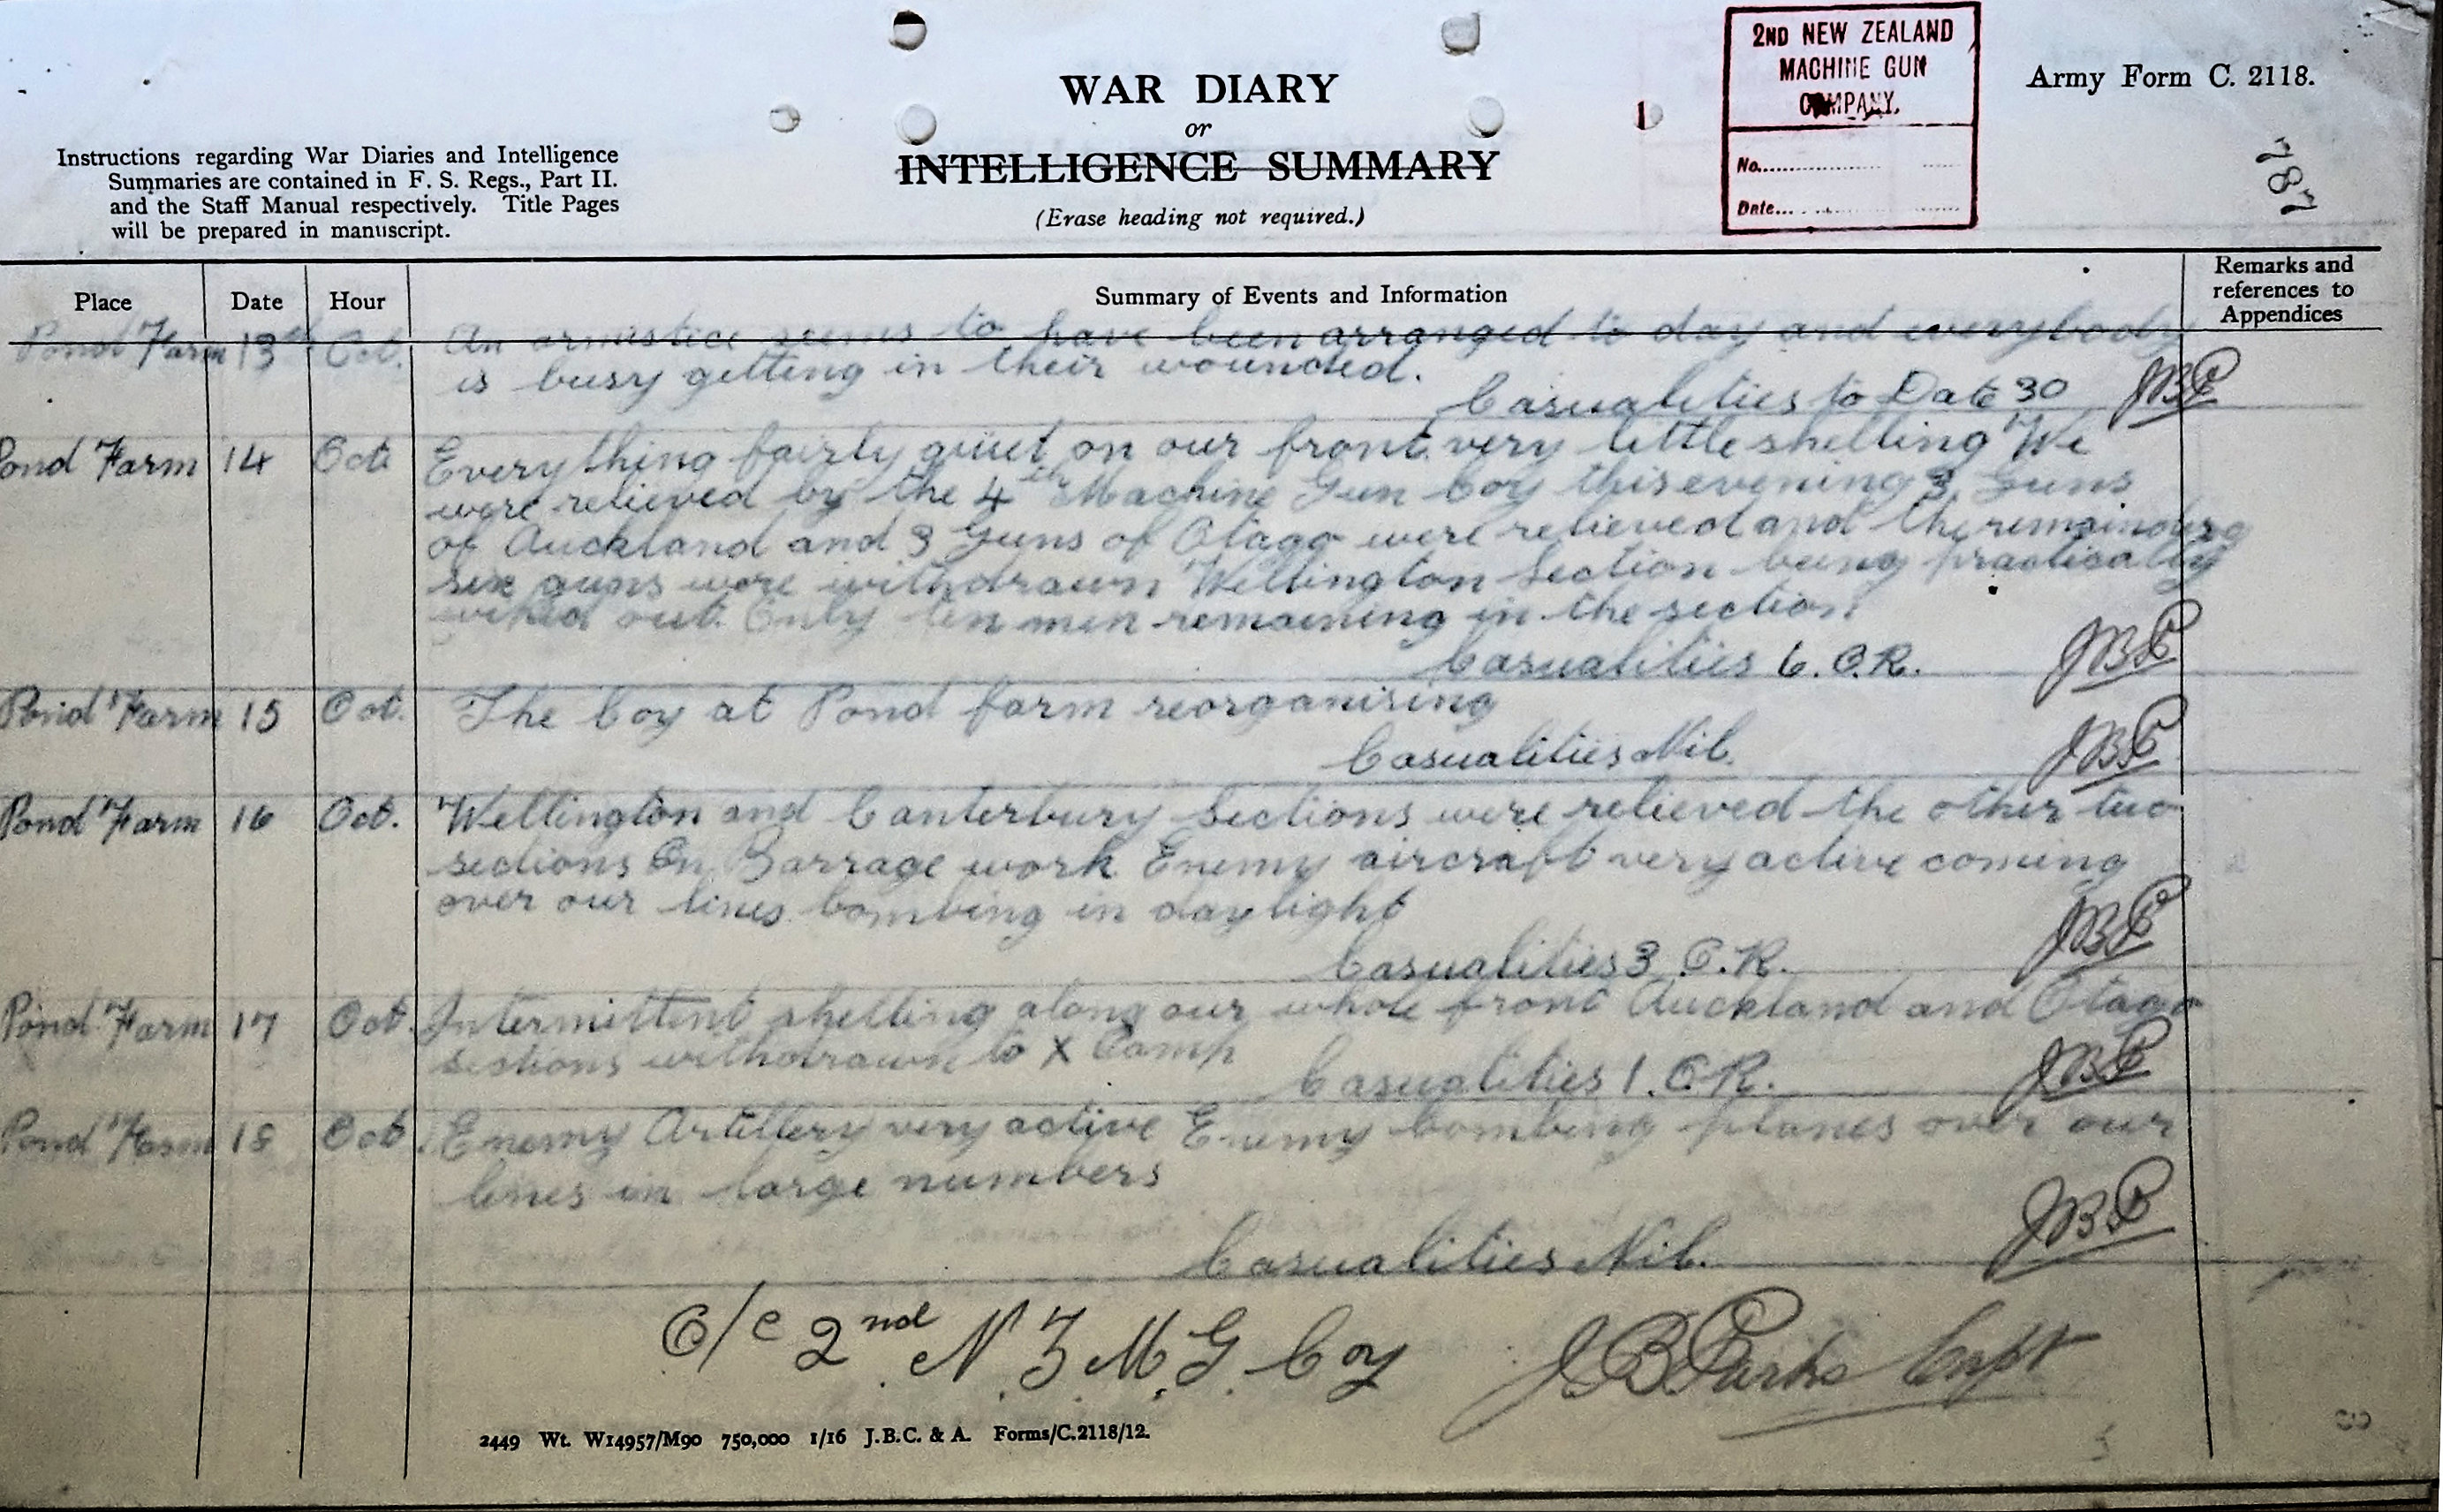 2ND NEW ZEALAND
MACHINE GUN
COMPANY.
No.
Date
Army Form C. 2118.
787
WAR DIARY
or
INTELLIGENCE SUMMARY
(Erase heading not required.)
Instructions regarding War Diaries and Intelligence
Summaries are contained in F. S. Regs., Part II.
and the Staff Manual respectively. Title Pages
will be prepared in manuscript.
Place Date Hour Summary of Events and Information Remarks and references to Appendices
Pond Farm 13th Oct. An armistice seems to have been arranged to day and everybody
is busy getting in their wounded.
Casualities to Date 30 JBP
Pond Farm 14 Oct Everything fairly quiet on our front very little shelling We
were relieved by the 4th Machine Gun Coy this evening 3 Guns
of Auckland and 3 Guns of Otago were relieved and the remaining
six guns were withdrawn Wellington Section being practically
wiped out. Only ten men remaining in the section
Casualities 6. O.R. JBP
Pond Farm 15 Oct. The Coy at Pond farm reorganising
Casualities Nil. JBP
Pond Farm 16 Oct. Wellington and Canterbury Sections were relieved the other two
sections On Barrage work Enemy aircraft very active coming
over our lines bombing in daylight
Casualities 3 O.R. JBP
Pond Farm 17 Oct. Intermittent shelling along our whole front Auckland and Otago
sections withdrawn to X Camp
Casualities 1. O.R. JBP
Pond Farm 18 Oct. Enemy Artillery very active Enemy bombing planes over our
lines in large numbers
Casualities Nil. JBP
O/c 2nd N.Z.M.G. Coy JB Parks Capt
2449 Wt. W14957/M90 750,000 1/16 J.B.C. & A. Forms/C.2118/12.